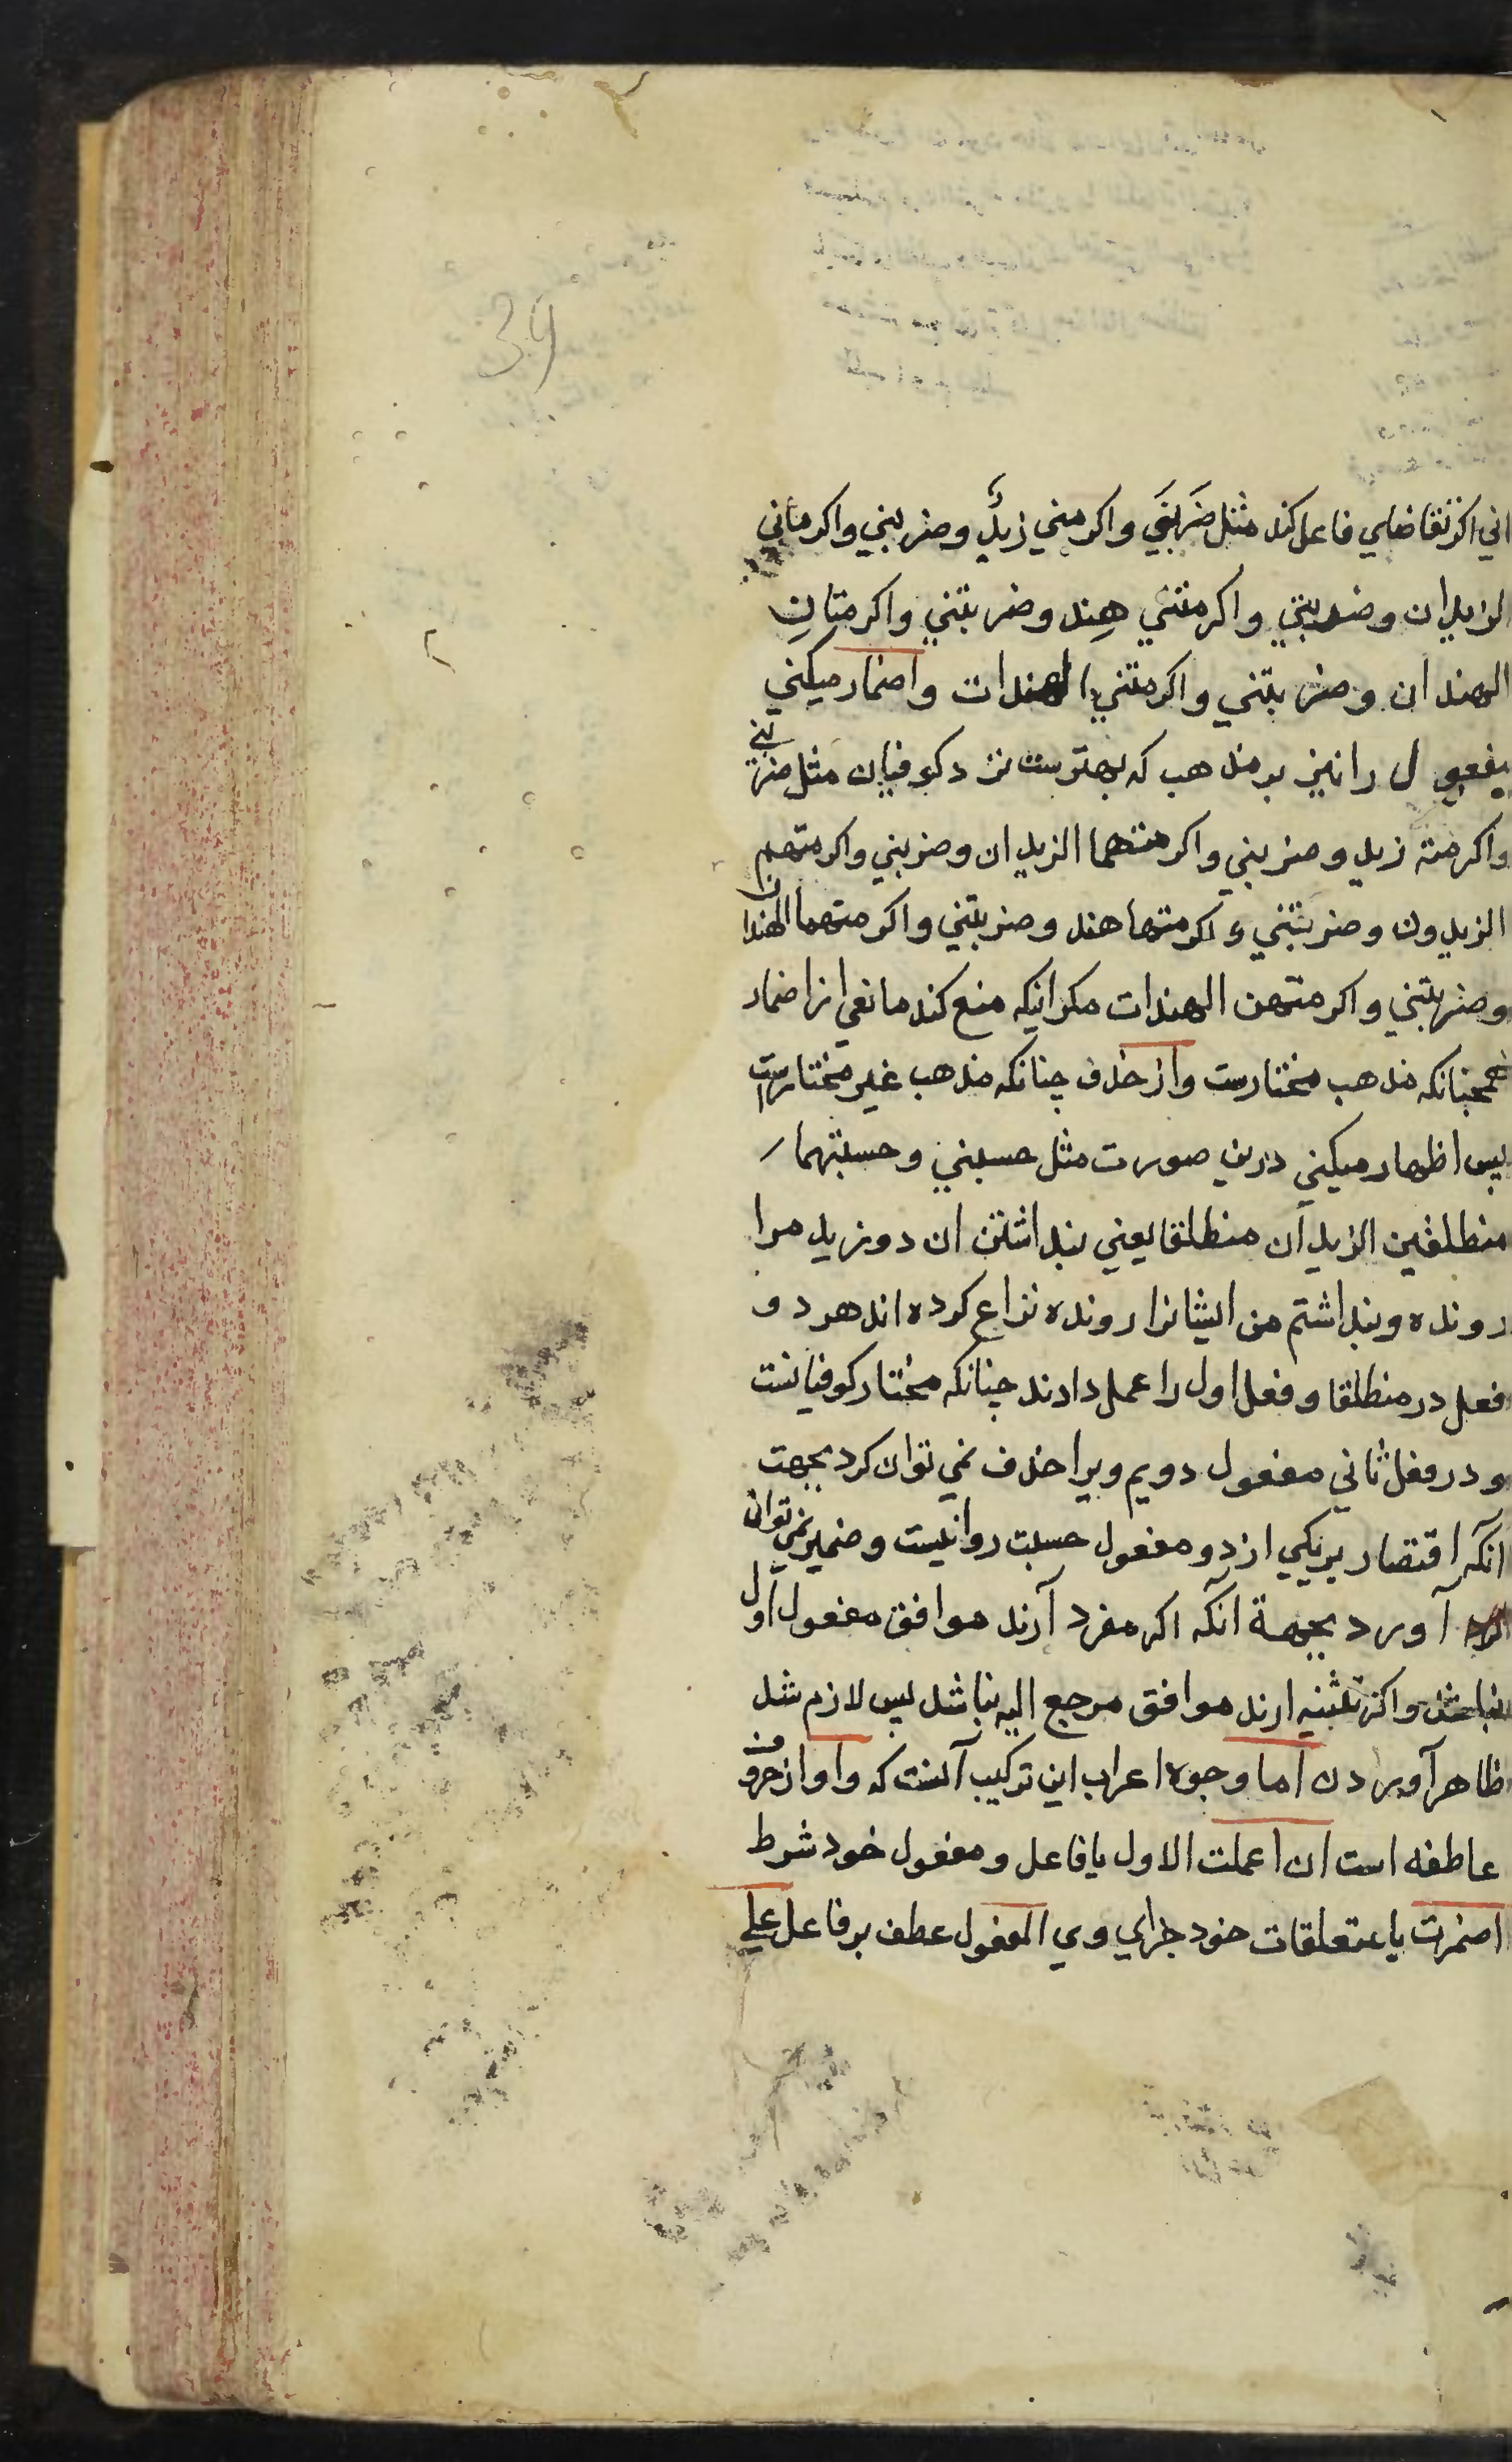 34
اني اكر تقاضاي فاعل كند مثل ضَرَبَني واكرمني زيدٌ وضربني واكرماني
الزيدان وضربتني واكرمتني هِند وضربتني واكرمتانِ
الهندان وضربتني واكرمتني الهندات واضمار ميكني
مفعول را نيز بر مذهب كه بهترست نزد كوفيان مثل ضربني
واكرمته زيد وضربني واكرمتهما الزيدان وضربني واكرمتهم
الزيدون وضربتني واكرمتها هند وضربتني واكرمتهما الهندان
وضربتني واكرمتهن الهندات مكر انيكه منع كند مانعي از اضمار
همچنانكه مذهب مختارست واز حذف چنانكه مذهب غير مختارست
پس اظهار ميكني درين صورت مثل حسبني وحسبتهما
منطلقين الزيدان منطلقا يعني پنداشتن ان دو زيد مرا
رونده وپنداشتم من ايشانرا رونده نزاع كرده اند هر دو
فعل در منطلقا وفعل اول را عمل دادند چنانكه مختار كوفيانست
ودر فعل ثاني مفعول دويم ويرا حذف نمي توان كرد بجهت
انكه اقتصار بر يكي از دو مفعول حسبت روا نيست وضمير نمي توان
آورد بجهة آنكه اكر مفرد آرند موافق مفعول اول
نباشد واكر تثنيه ارند موافق مرجع اليه نباشد پس لازم شد
ظاهر آوردن اما وجوه اعراب اين تركيب آنست كه واو از حروف
عاطفه است ان اعملت الاول با فاعل ومفعول خود شرط
اضمرت با متعلقات خود جزاي وي المفعول عطف بر فاعل علي